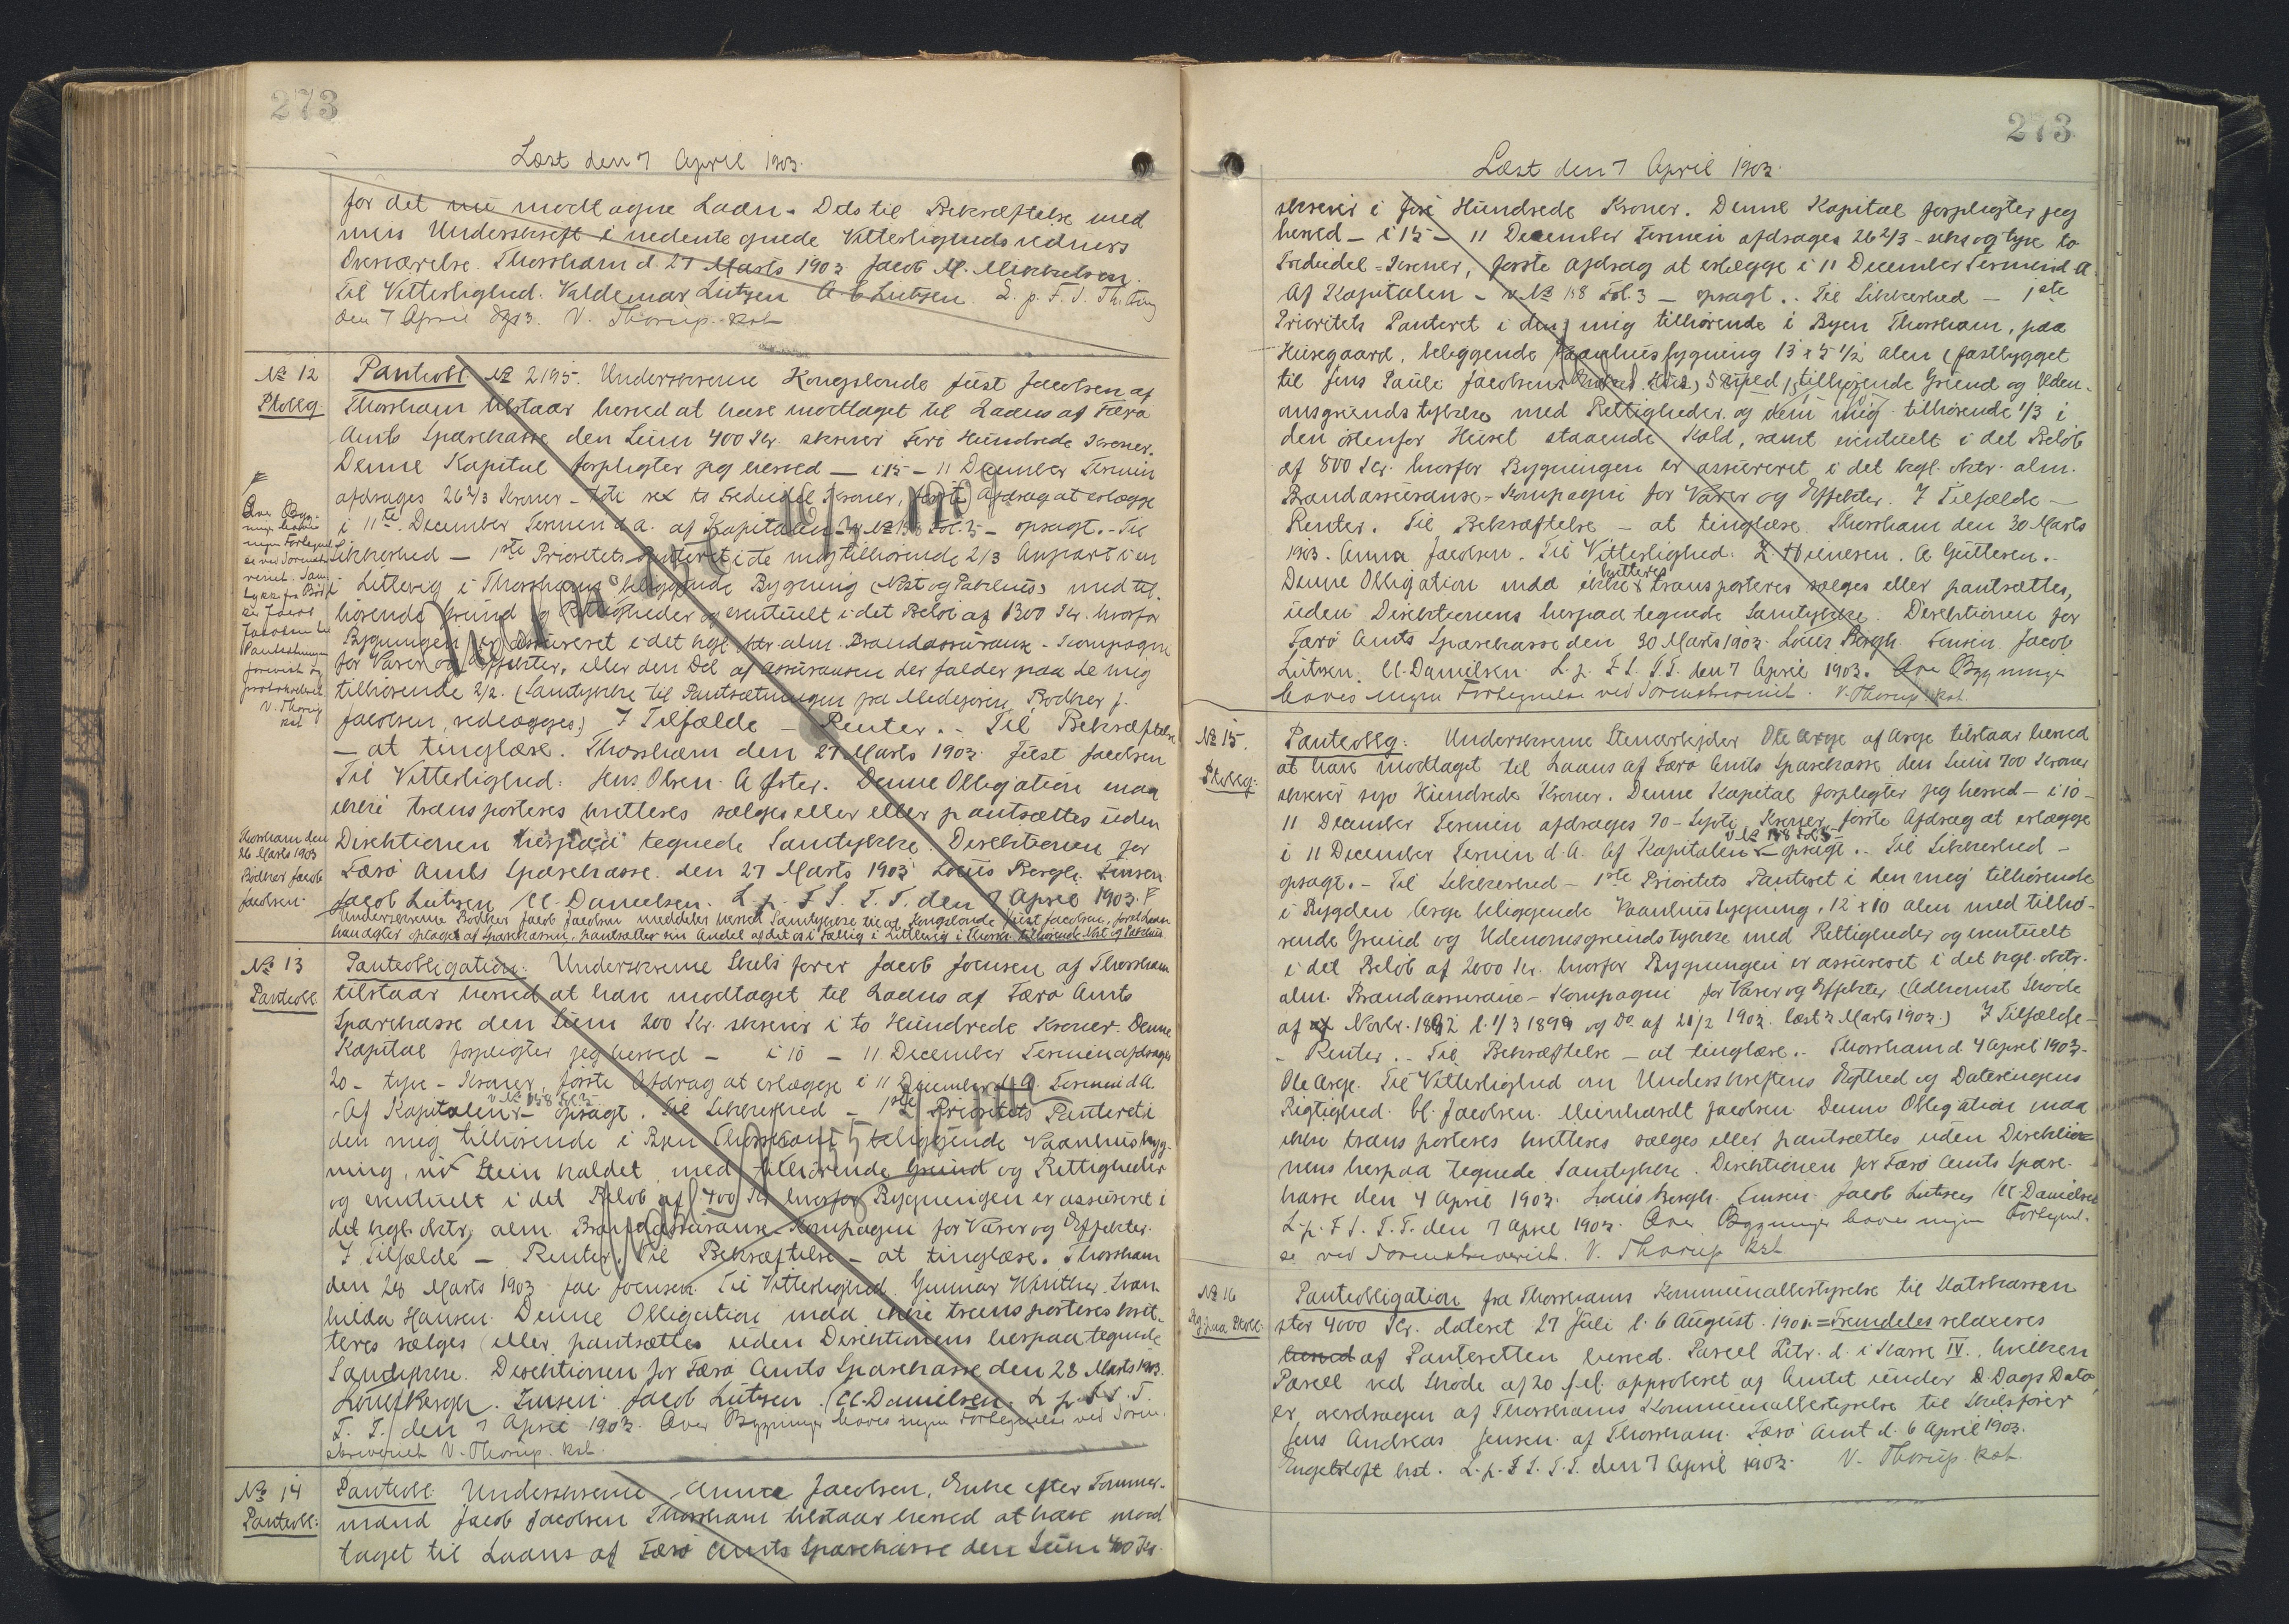 273
Læst den 7 April 1903.
for det nu modtagne Laan. Dets til Bekræftelse med
min Underskrift i nedentegnede Vitterlighedsvidners
Overværelse. Thorshavn d. 27 Marts 1903 Jacob M. Mikkelsen.
Til Vitterlighed. Valdemar Lützen A C Lützen. L. p. F. S. Th. Ting
den 7 April 1903. V. Thorup. kst
No 12
Ptoblg
Panteobl. No 2195. Underskrevne Kongsbonde Just Jacobsen af
Thorshavn tilstaar herved at have modtaget til Laans af Færø
Amts Sparekasse den Sum 400 Kr. skriver Fire Hundrede Kroner.
Denne Kapital forpligter jeg herved — i 15 – 11 December Termin
afdrages 26 2/3 Kroner – tyve sex to Trediedel Kroner, første Afdrag at erlægge
i 11te December Termin d. a. af Kapitalen – v. No 158 Fol. 3 – opsagt. – Til
Sikkerhed — 1ste Prioritets Panteret i de mig tilhørende 2/3 Anpart i en
i Litlevig i Thorshavn beliggende Bygning (Nøst og Pakhus) med til-
hørende Grund og Rettigheder og eventuelt i det Beløb af 1300 Kr. hvorfor
Bygningen er assureret i det kgl. oktr. alm. Brandassurance-Kompagni
for Varer og Effekter, eller den Del af Assurancen der falder paa de mig
tilhørende 2/3. (Samtykke til Pantsætningen fra Medejeren, Bødker J.
Jacobsen, vedlægges) I Tilfælde — Renter. – Til Bekræftelse
— at tinglæse. Thorshavn den 27 Marts 1903. Just Jacobsen
Til Vitterlighed: Jens Olsen. A Øster. Denne Obligation maa
ikke transporteres kvitteres sælges eller eller pantsættes uden
Direktionen herpaa tegnede Samtykke Direktionen for
Færø Amts Sparekasse. den 27 Marts 1903 Louis Bergh. Ensen
Jacob Lützen CC. Danielsen. L. p. F S. T. T. den 7 April 1903. F
Underskrevne Bødker Jacob Jacobsen meddeler herved Samtykke til at Kongsbonde Just Jacobsen, for et Laan
han agter optaget af Sparekassen, pantsætter sin Andel af det os i Fællig i Litlevig i Thorsh. tilhørende Nøst og Pakhus
F
Over Byg-
ningen haves
ingen Fortegnel-
se ved Sorenskri-
veriet. Sam-
tykke fra Bød-
ker Jacob
Jacobsen til
Pantsætningen
forevist og
protokolleret.
V. Thorup
kst
Thorshavn den
26 Marts 1903
Bødker Jacob
Jacobsen.
No 13
Panteobl
Panteobligation. Underskrevne Skibsfører Jacob Joensen af Thorshavn
tilstaar herved at have modtaget til Laans af Færø Amts
Sparekasse den Sum 200 Kr. skriver i to Hundrede Kroner. Denne
Kapital forpligter jeg herved — i 10 — 11 December Termin afdrages
20 – tyve – Kroner, første Afdrag at erlægge i 11 December d. A. Termin d. A.
Af Kapitalen v. No 158 Fol 3 – opsagt. Til Sikkerhed – 1ste Prioritets Panteret i
den mig tilhørende i Byen Thorshavn beliggende Vaanhusbyg-
ning, við Stein kaldet, med tilhørende Grund og Rettigheder
og eventuelt i det Beløb af 400 Kr. hvorfor Bygningen er assureret i
det kgl. oktr. alm. Brandassurance Kompagni for Varer og Effekter.
I Tilfælde — Renter. Til Bekræftelse – at tinglæse. Thorshavn
den 28 Marts 1903 Jac. Joensen. Til Vitterlighed. Gunnar Winther. Svan-
hilda Hansen. Denne Obligation maa ikke transporteres kvit-
teres sælges eller pantsættes uden Direktionens herpaa tegnede
Samtykke. Direktionen for Færø Amts Sparekasse den 28 Marts 1903.
Louis Bergh. Ensen. Jacob Lützen. CC. Danielsen. L. p. F. S. T.
T. T. den 7 April 1903. Over Bygninger haves ingen Fortegnelse ved Soren-
skriveriet V. Thorup. kst.
No 14
Panteobl:
Panteobl. Underskrevne Anna Jacobsen, Enke efter Tømmer-
mand Jacob Jacobsen Thorshavn tilstaar herved at have mod
taget til Laans af Færø Amts Sparekasse den Sum 400 Kr.
273
Læst den 7 April 1903.
skriver i fire Hundrede Kroner. Denne Kapital forpligter jeg
herved – i 15 – 11 December Termin afdrages 26 2/3 – seks og tyve to
Trediedel = Kroner, første Afdrag at erlægge i 11 December Termin d. A.
Af Kapitalen – v. No 158 Fol. 3 – opsagt. . Til Sikkerhed – 1ste
Prioritets Panteret i den mig tilhørende i Byen Thorshavn, paa
Husegaard, beliggende Vaanhusbygning 13 x 5 1/2 Alen (fastbygget
til Jens Pauli Jacobsens tilhørende Grund og Uden-
omsgrundstykke med Rettigheder og den mig tilhørende 1/3 i
den østenfor Huset staaende Kald, samt eventuelt i det Beløb
af 800 Kr. hvorfor Bygningen er assureret i det kgl. oktr. alm.
Brandassurance-Kompagni for Varer og Effekter. I Tilfælde —
Renter. Til Bekræftelse – at tinglæse. Thorshavn den 30 Marts
1903. Anna Jacobsen. Til Vitterlighed. Z Heinesen. A Guttesen. .
Denne Obligation maa ikke kvitteres transporteres sælges eller pantsættes,
uden Direktionens herpaa tegnede Samtykke. Direktionen for
Færø Amts Sparekasse den 30 Marts 1903. Louis Bergh. Ensen. Jacob
Lützen. CC. Danielsen. L. p. F. S. T. T. den 7 April 1903. Over Bygninger
haves ingen Fortegnelse ved Sorenskriveriet. V. Thorup. kst.
No 15.
Ptoblg:
Panteoblg: Underskrevne Stenarbejder Ole Arge af Arge tilstaar herved
at have modtaget til Laans af Færø Amts Sparekasse den Sum 700 Kroner
skriver syv Hundrede Kroner. Denne Kapital forpligter jeg herved – i 10 –
11 December Termin afdrages 70 – Sytti Kroner, første Afdrag at erlægge
i 11 December Termin d. A. Af Kapitalen v No 158 Fol 3 – opsagt. . Til Sikkerhed –
opsagt. – Til Sikkerhed – 1ste Prioritets Panteret i den mig tilhørende
i Bygden Arge beliggende Vaanhusbygning, 12 x 10 Alen med tilhø-
rende Grund og Udenomsgrundstykke med Rettigheder og eventuelt
i det Beløb af 2000 Kr. hvorfor Bygningen er assureret i det kgl. oktr.
alm. Brandassurance-Kompagni for Varer og Effekter (Adkomst Skøde
af Novbr. 1892 l. 1/3 1899 og Do af 21/2 1903. læst 3 Marts 1903.) I Tilfælde –
– Renter. . Til Bekræftelse – at tinglæse. . Thorshavn d 4 April 1903.
Ole Arge. Til Vitterlighed om Underskriftens Ægthed og Dateringens
Rigtighed. Jacobsen. Meinhardt Jacobsen. Denne Obligation maa
ikke transporteres kvitteres sælges eller pantsættes uden Direktio-
nens herpaa tegnede Samtykke. Direktionen for Færø Amts Spare-
kasse den 4 April 1903. Louis Bergh. Ensen. Jacob Lützen CC Danielsen
L. p. F S. T. T. den 7 April 1903. Over Bygninger haves ingen Fortegnel-
se ved Sorenskriveriet. V. Thorup kst
No 16
Panteobligation fra Thorshavns Kommunalbestyrelse til Statskassen
stor 4000 Kr. dateret 27 Juli l. 6 August 1901. = Fremdeles relaxeres
herved af Panteretten herved. Parcel Litr. d. i Karré IV., hvilken
Parcel ved Skøde af 20 f. M. approberet af Amtet under D. Dags Dato,
er overdragen af Thorshavns Kommunalbestyrelse til Skibsfører
Jens Andreas Jensen af Thorshavn. Færø Amt d. 6 April 1903.
Engelstoft kst. L. p. F S. T. T. den 7 April 1903. V. Thorup kst.